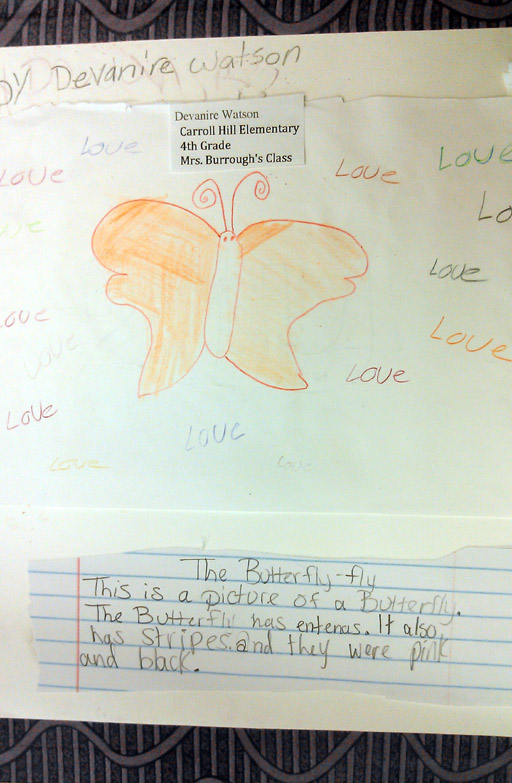 by Devanire Watson
Devanire Watson
Carroll Hill Elementary
4th Grade
Mrs. Burrough's Class
Love
Love
Love
Love
Love
Lo
Love
Love
Love
Love
Love
Love
Love
Love
Love
Love
The Butterfly-fly
This is a picture of a Butterfly.
The Butterfly has entenas. It also
has stripes. and they were pink
and black.